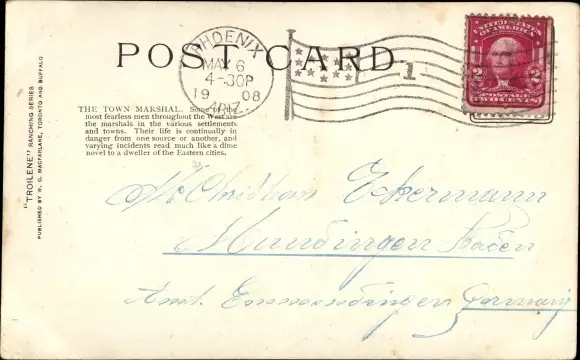 POST CARD
PHOENIX
MAY 6
4-30P
1908
ARIZ.
1
UNITED STATES
OF AMERICA
2 2
POSTAGE
TWO CENTS
THE TOWN MARSHAL. Some of the
most fearless men throughout the West are
the marshals in the various settlements
and towns. Their life is continually in
danger from one source or another, and
varying incidents read much like a dime
novel to a dweller of the Eastern cities.
"TROILENE" RANCHING SERIES
PUBLISHED BY W. G. MACFARLANE, TORONTO AND BUFFALO
Mr Christian Eckermann
Mundingen Baden
Amt. Emmendingen Germany